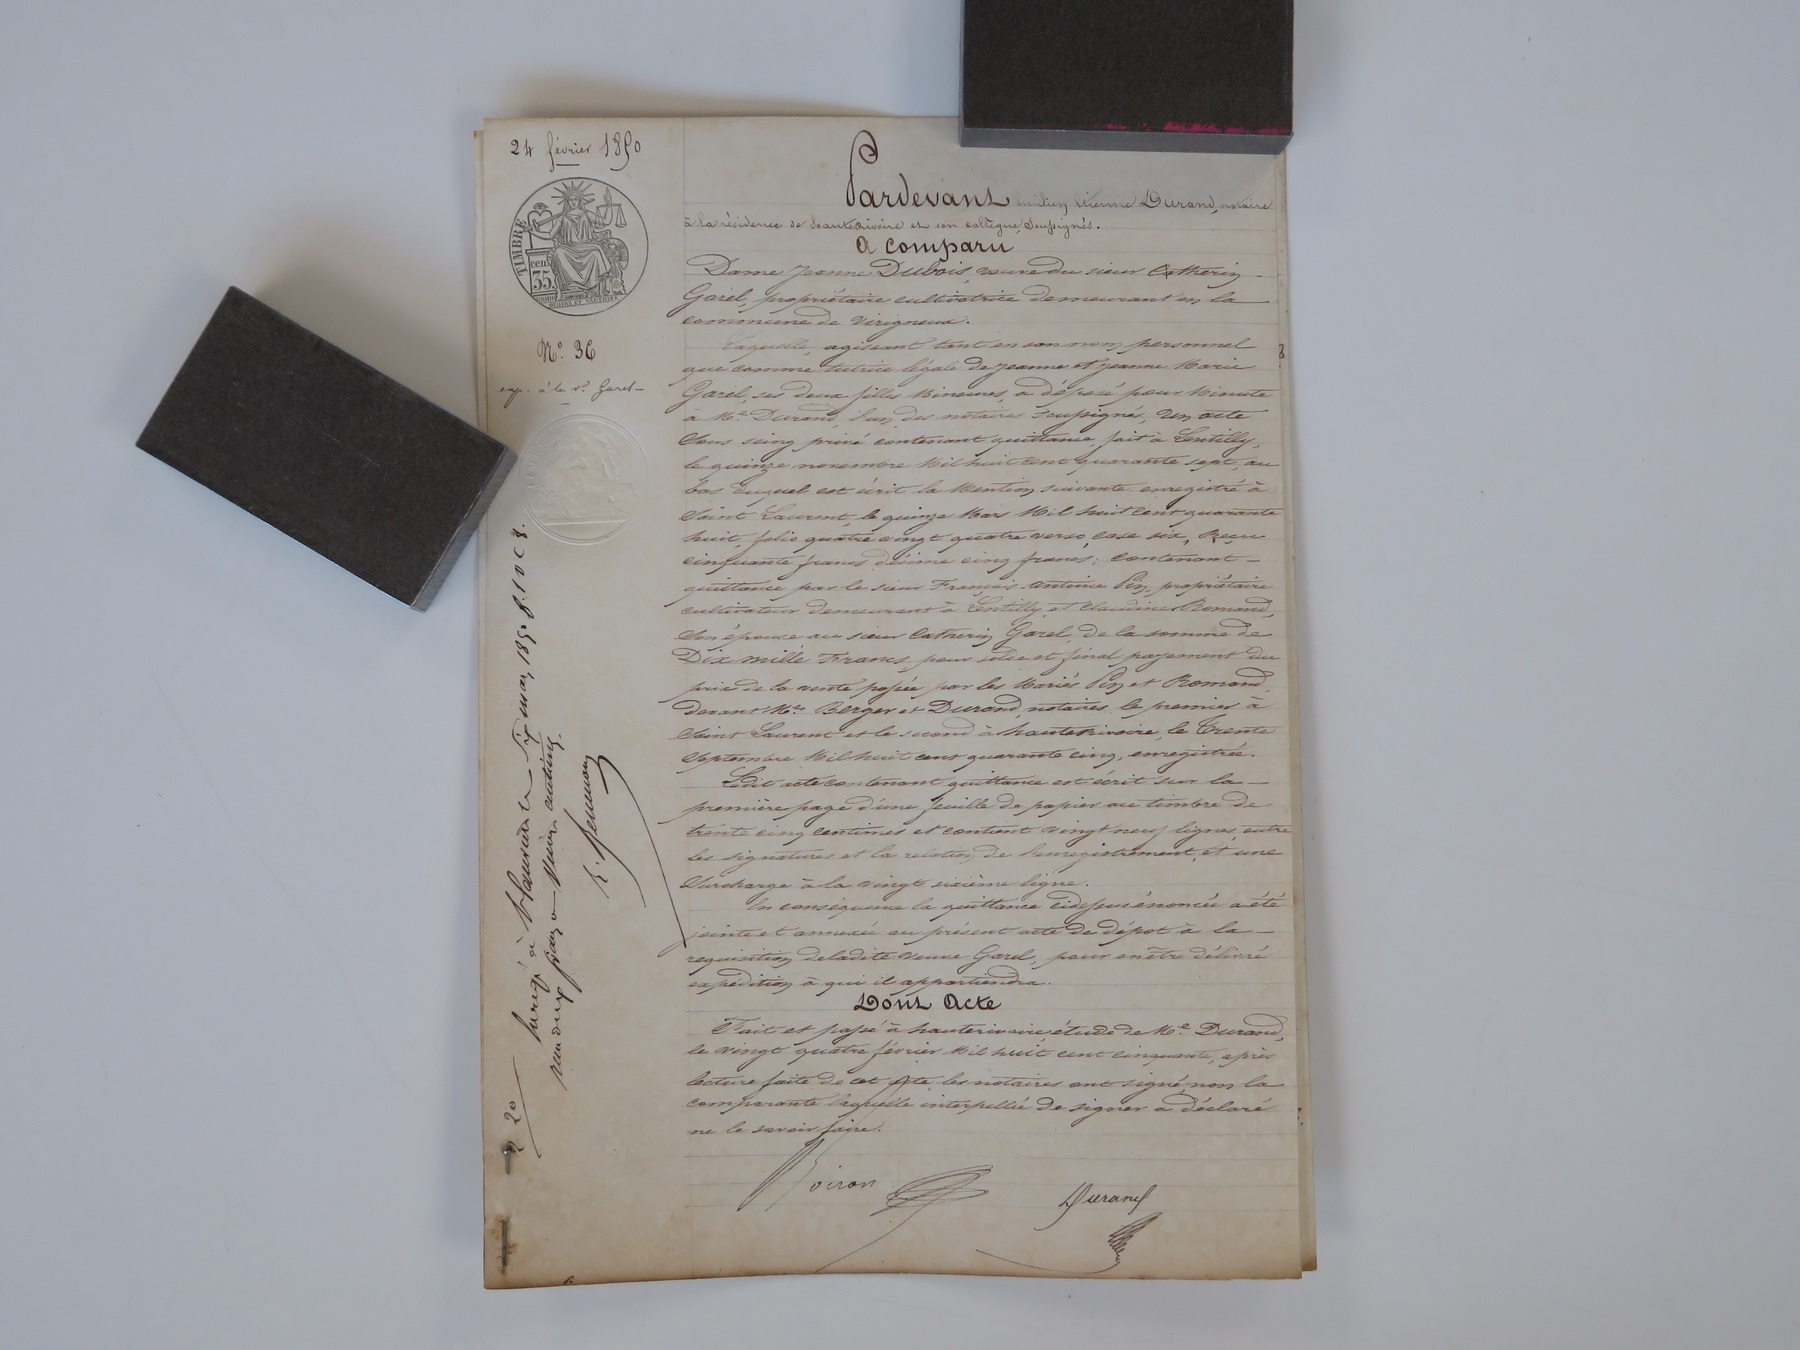 24 février 1850
TIMBRE
cen.
35.
N.º 36
exp. à la v.e Garel
Pardevant Etienne Durand, notaire
à la résidence de hauterivoire et son collègue, Soussignés.
a comparu
Dame Jeanne Dubois, veuve du sieur Catherin
Garel, propriétaire cultivatrice demeurant en la
commune de Virigneux.
Laquelle, agissant tant en son nom personnel
que comme tutrice légale de Jeanne et Jeanne Marie
Garel, ses deux filles Mineures, a déposé pour Minute
à M.e Durand, l'un des notaires soussignés, Un acte
Sous seing privé contenant quittance, fait à Lentilly,
le quinze novembre Mil huit cent quarante sept, au
bas duquel est écrit la Mention suivante: enregistré à
Saint Laurent, le quinze Mars Mil huit cent quarante
huit, folio quatre vingt quatre verso, case six, Reçu
cinquante francs décime cinq francs; contenant
quittance par le sieur Français Antoine Pin, propriétaire
cultivateur demeurant à Lentilly, et Claudine Romand,
Son épouse au sieur Catherin Garel, de la somme de
Dix mille Francs, pour solde et final payement du
prix de la vente passée par les Mariés Pin et Romand,
devant M.es Berger et Durand, notaires le premier à
Saint Laurent et le second à hauterivoire, le Trente
Septembre Mil huit cent quarante cinq, enregistrée.
Ledit acte contenant quittance est écrit sur la
première page d'une feuille de papier au timbre de
trente cinq centimes et contient vingt neuf lignes, entre
les signatures et la relation de l'enregistrement, et une
Surcharge à la vingt sixième ligne.
En conséquence la quittance cidessus énoncée a été
jointe et annexée au présent acte de dépot à la
requisition deladite veuve Garel, pour en être délivré
expédition à qui il appartiendra.
Dont Acte
Fait et passé à hauterivoire, étude de M.e Durand,
le vingt quatre février Mil huit cent cinquante, après
lecture faite de cet acte, les notaires ont signé, non la
comparante laquelle interpellée de signer a déclaré
ne le savoir faire.
Voiron
Durand
2 20